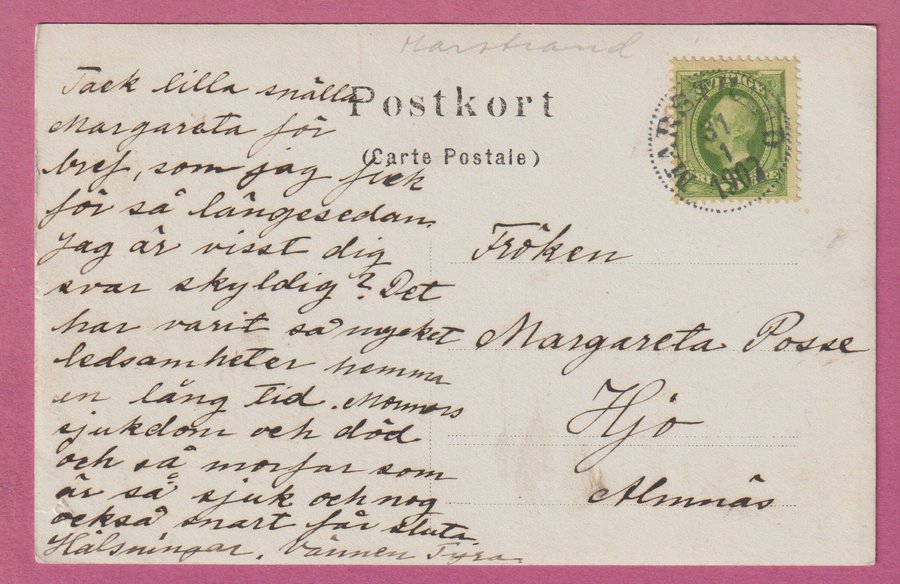 Marstrand
Postkort
(Carte Postale)
Tack lilla snälla
Margareta för
bref, som jag fick
för så längesedan.
Jag är visst dig
svar skyldig? Det
har varit så mycket
ledsamheter hemma
en lång tid. Mormors
sjukdom och död
och så morfar som
är så sjuk och nog
också snart får sluta.
Hälsningar. Vännen Tyra.
MARSTRAND
1
Fröken
Margareta Posse
Hjo
Almnäs